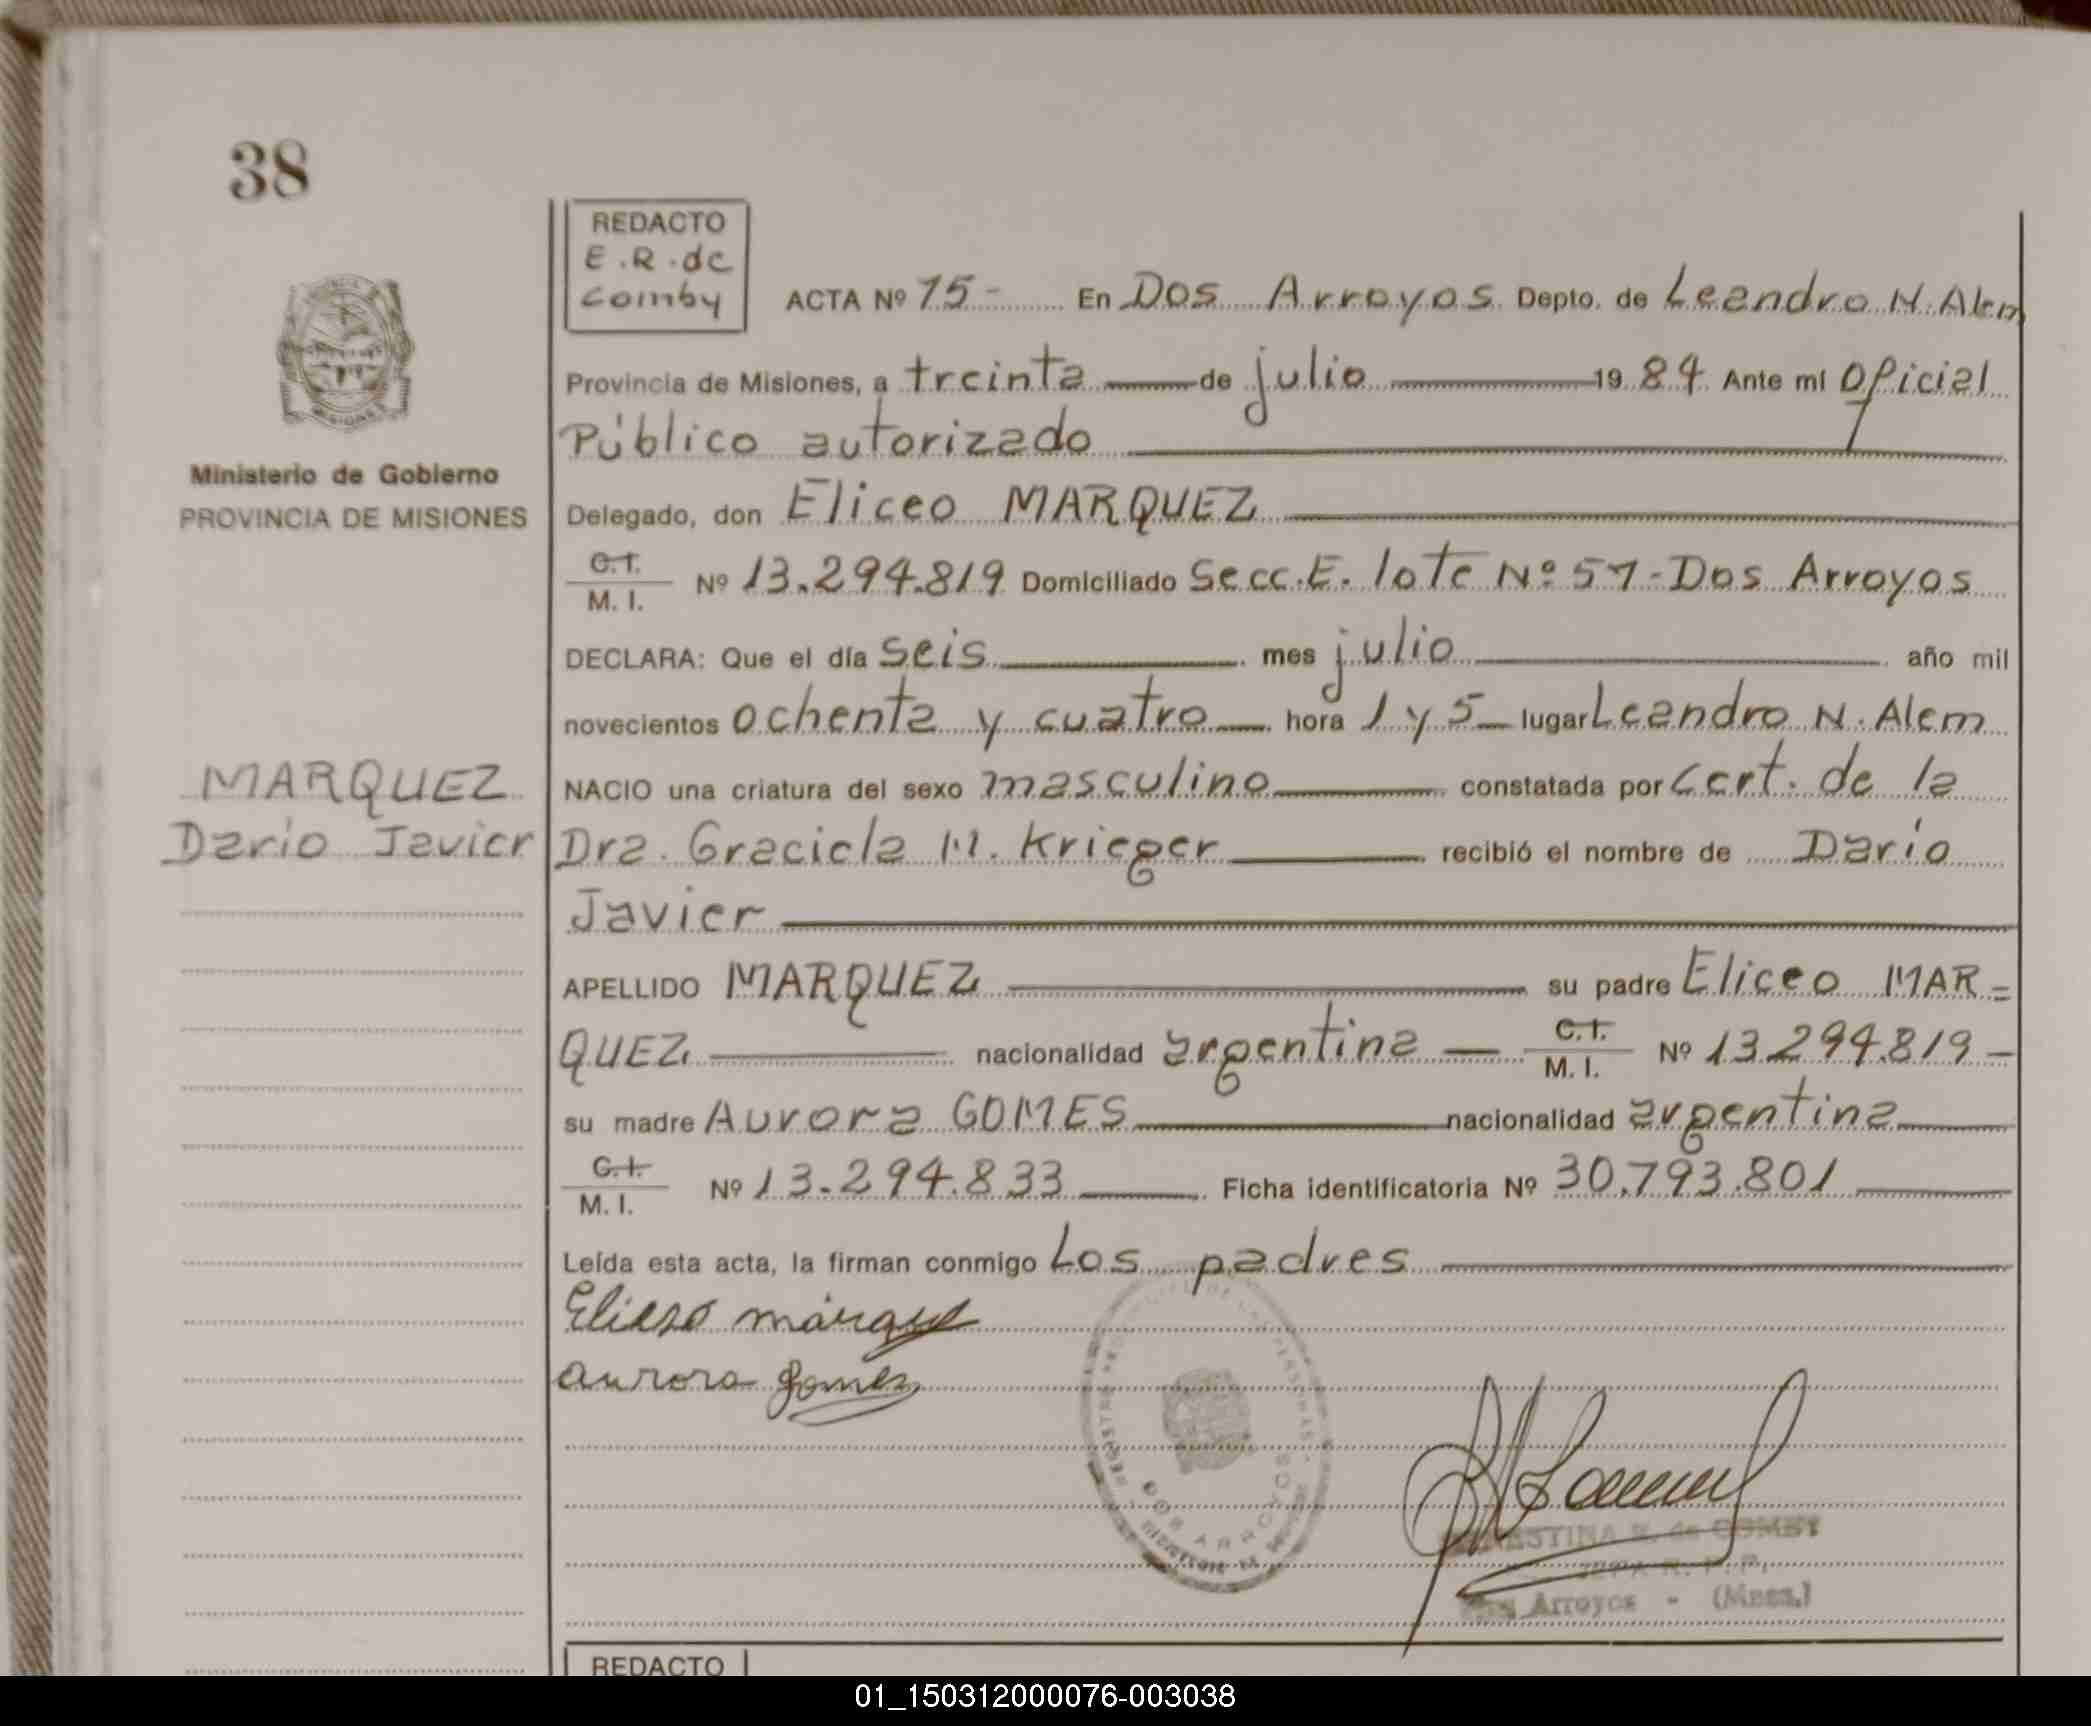 38
REDACTO
E.R.de
Comby
ACTA Nº 75- En Dos Arroyos Depto. de Leandro N. Alem
Provincia de Misiones, a treinta de julio 1984 Ante mí Oficial
Público autorizado
Ministerio de Gobierno
PROVINCIA DE MISIONES
Delegado, don Eliceo MARQUEZ
C.I.
M. I. Nº 13.294.819 Domiciliado Secc.E. lote Nº 57-Dos Arroyos
DECLARA: Que el día seis mes julio año mil
novecientos ochenta y cuatro hora 1 y 5 lugar Leandro N. Alem
MARQUEZ
Dario Javier
NACIO una criatura del sexo masculino constatada por cert. de la
Dra. Graciela M. Krieger recibió el nombre de Darío
Javier
APELLIDO MARQUEZ su padre Eliceo MAR=
QUEZ nacionalidad argentina C.I.
M. I. Nº 13.294.819-
su madre Aurora GOMES nacionalidad argentina
C.I.
M. I. Nº 13.294.833 Ficha identificatoria Nº 30.793.801
Leída esta acta, la firman conmigo Los padres
Elizeo márquez
aurora gomes
DOS ARROYOS
de COMBY
Arroyos - (Mnes.)
REDACTO
01_150312000076-003038